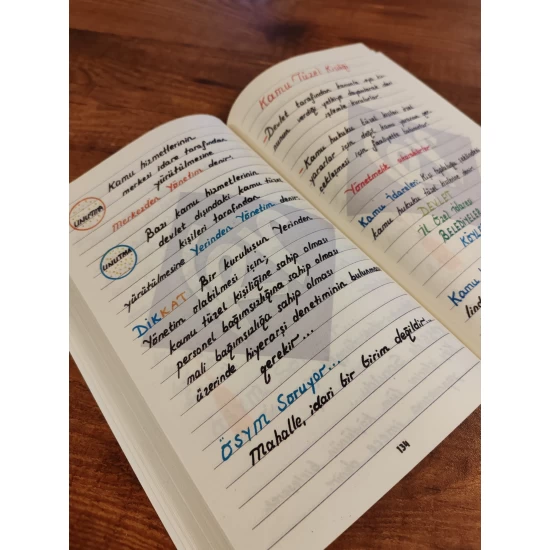 Kamu hizmetlerinin
merkezi idare tarafından
yürütülmesine
UNUTMA
Merkezden Yönetim denir.
Bazı kamu hizmetlerinin
UNUTMA
devlet dışındaki kamu tüzel
kişileri tarafından
yürütülmesine Yerinden Yönetim denir.
DİKKAT Bir kuruluşun Yerinden
Yönetim olabilmesi için;
kamu tüzel kişiliğine sahip olması
personel bağımsızlığına sahip olması
mali bağımsızlığa sahip olması
üzerinde hiyerarşi denetiminin bulunma
gerekir...
ÖSYM Soruyor...
Mahalle, idari bir birim değildir...
134
Kamu Tüzel Kişiliği
Devlet tarafından kanunla
verdiği yetkiye dayanılarak
işlemle kurulurlar.
- Kamu hukuku tüzel
yararlar için değil kamu
için faaliyette bulunurlar.
Yönetmelik
Kamu İdareleri:
kamu hukuku tüzel
DEVLET
İl Özel İdaresi
BELEDİYELER
KÖYLE
Kamu
lind